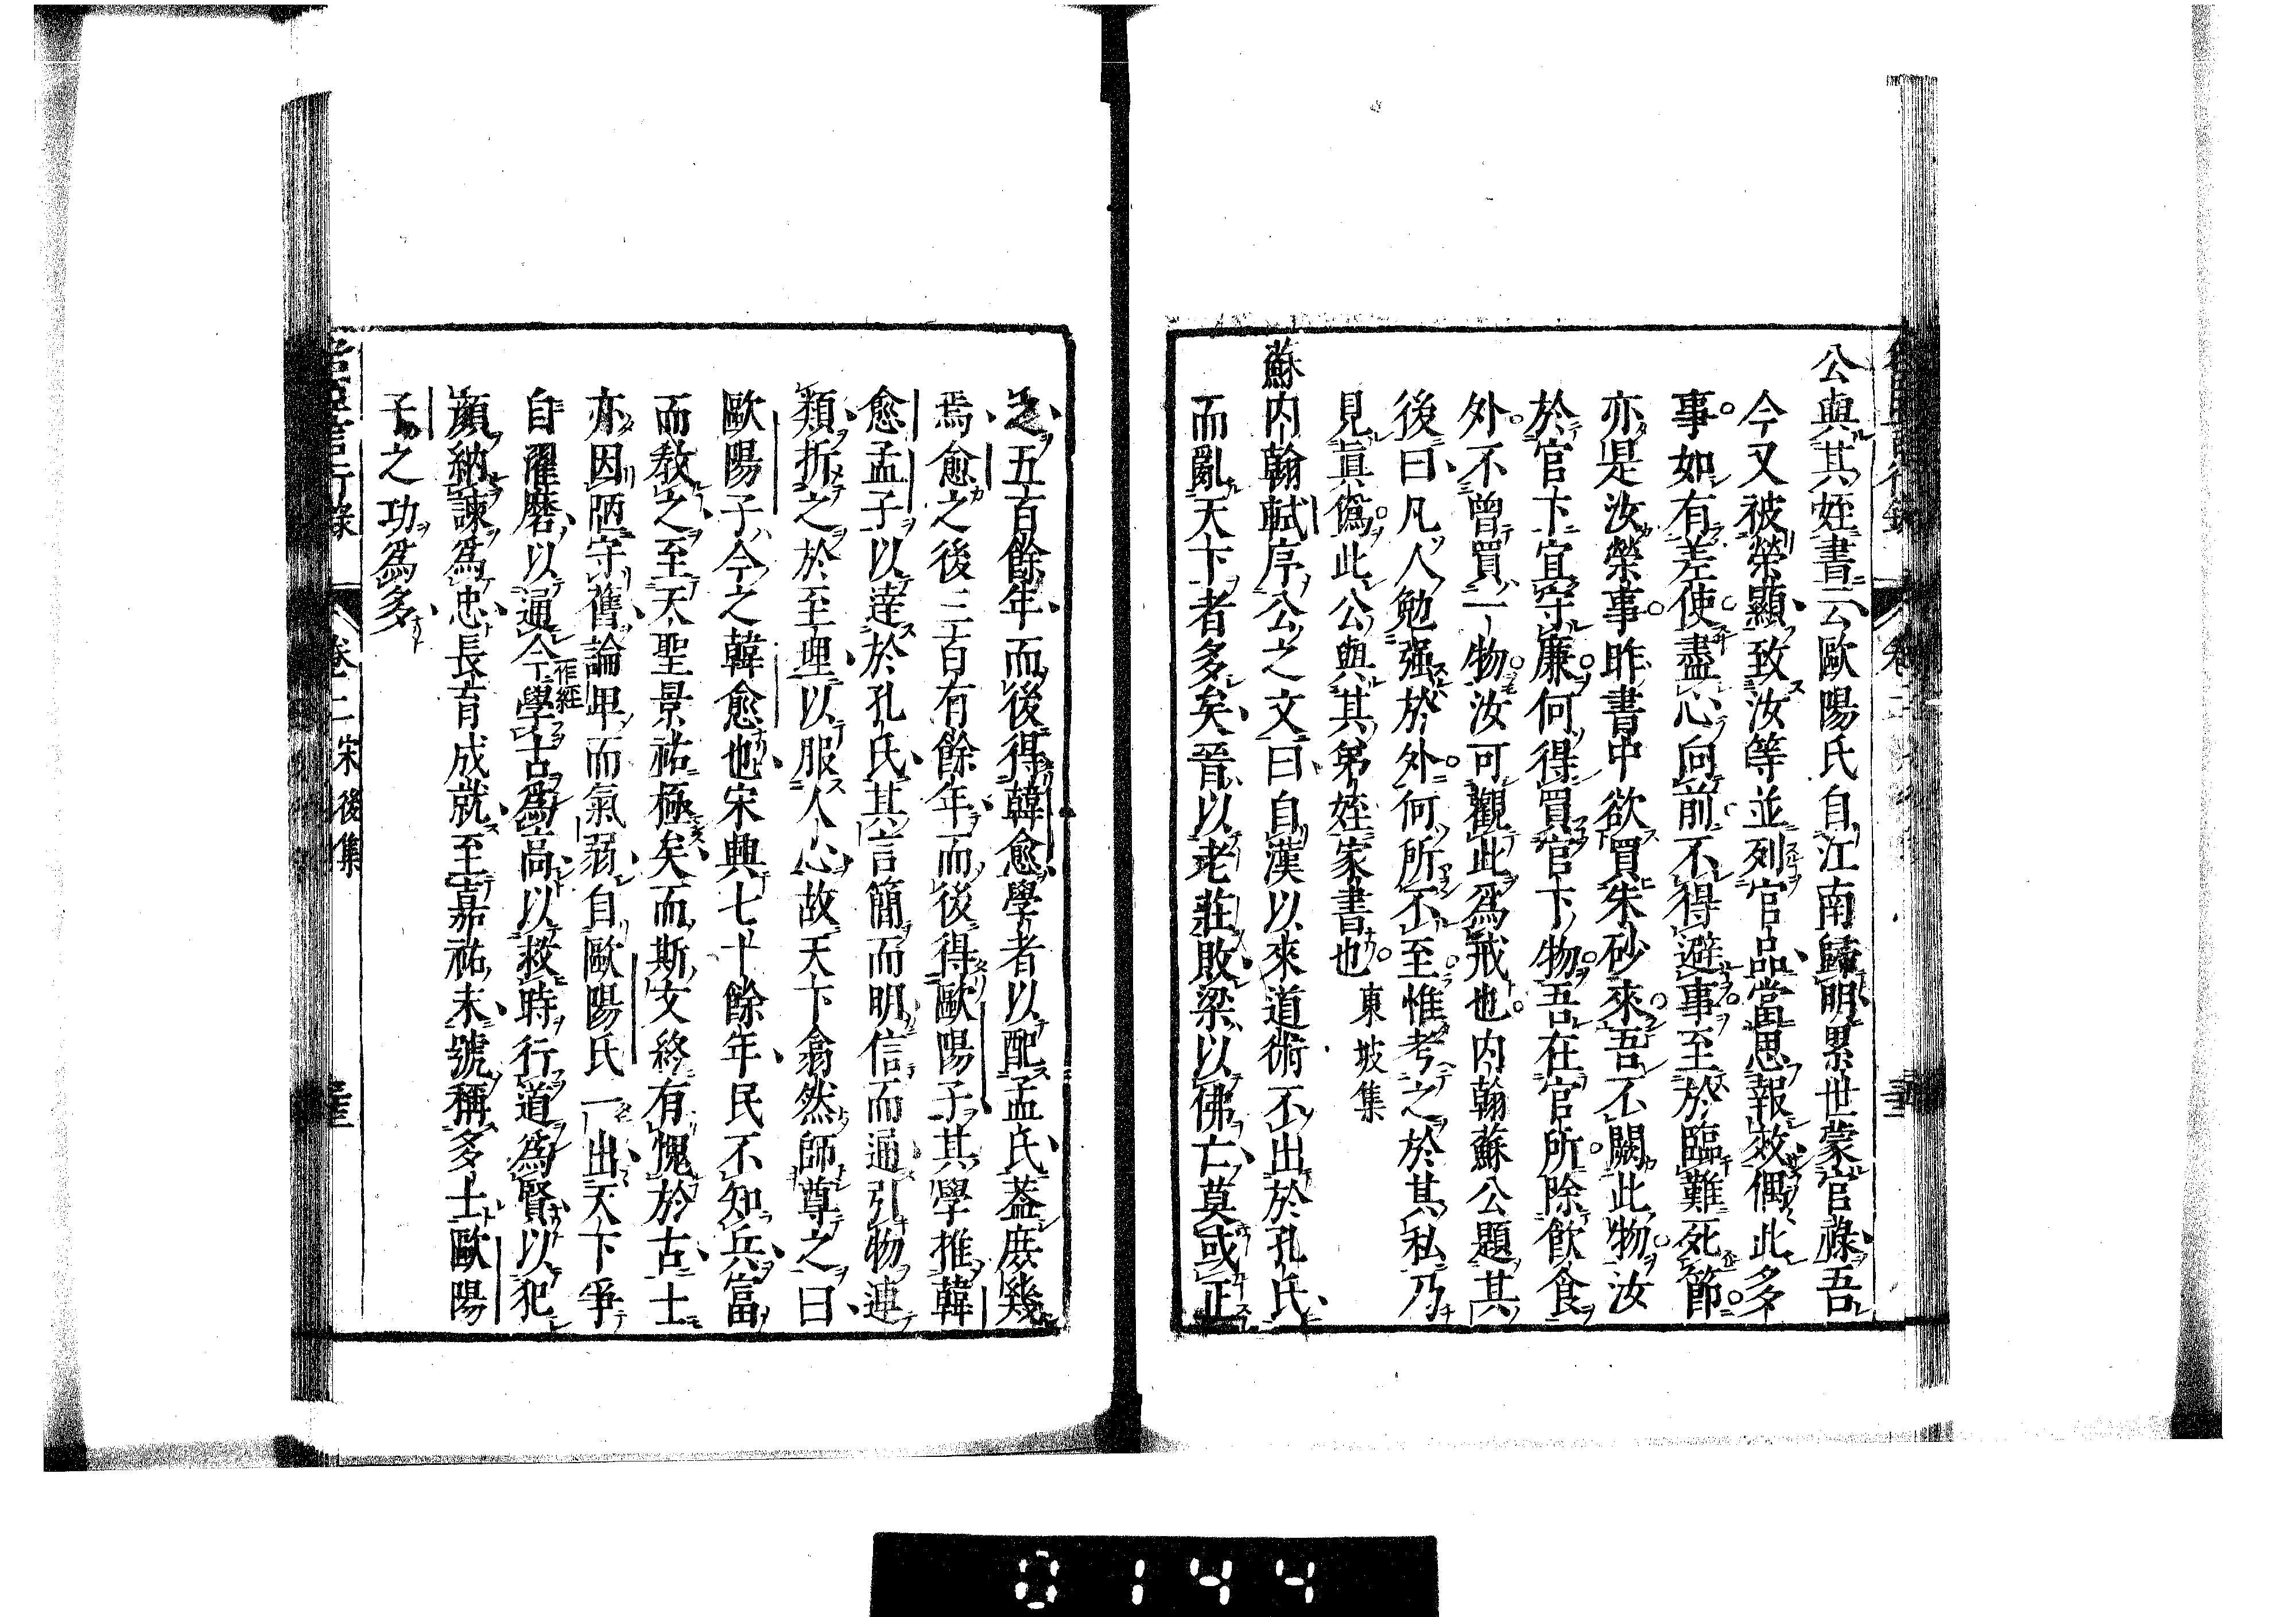 公與其姪書云歐陽氏自江南歸明累世蒙官祿吾
今又被榮顯致汝等並列官品當思報效偶此多
事如有差使盡心向前不得避事至於臨難死節
亦是汝榮事昨書中欲買朱砂來吾不闕此物汝
於官下宜守廉何得買官下物吾在官所除飲食
外不曾買一物汝可觀此爲戒也內翰蘇公題其
後曰凡人勉强於外何所不至惟考之於其私乃
見眞僞此公與其弟姪家書也 東坡集
蘇內翰軾序公之文曰自漢以來道術不出於孔氏
而亂天下者多矣晉以老莊敗梁以佛亡莫或正
之五百餘年而後得韓愈學者以配孟氏葢庶幾
焉愈之後三百有餘年而後得歐陽子其學推韓
愈孟子以達於孔氏其言簡而明信而通引物連
類折之於至理以服人心故天下翕然師尊之曰
歐陽子今之韓愈也宋興七十餘年民不知兵富
而敎之至天聖景祐極矣而斯文終有愧於古士
亦因陋守舊論卑而氣弱自歐陽氏一出天下爭
自濯磨以通今作經學古爲高以救時行道爲賢以犯
顏納諫爲忠長育成就至嘉祐末號稱多士歐陽
子之功爲多
卷十二宋後集
0144